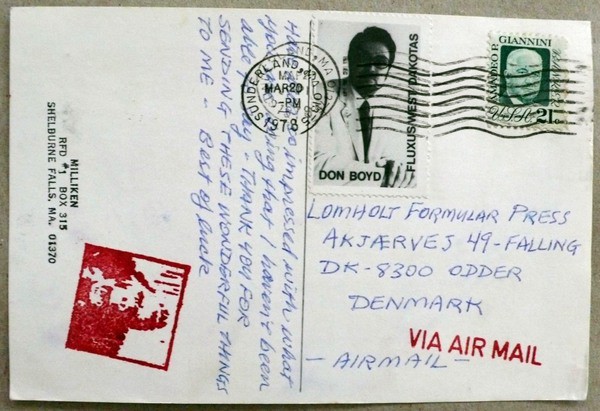 MILLIKEN
RFD #1 BOX 315
SHELBURNE FALLS, MA. 01370
so impressed with what
you that I haven't been
able - THANK YOU FOR
SENDING THESE WONDERFUL THINGS
TO ME - Best of luck
SUNDERLAND, MA
MAR 20
PM
1978
DON BOYD
FLUXUS WEST/DAKOTAS
AMADEO P. GIANNINI
USA 21c
LOMHOLT FORMULAR PRESS
AKJÆRVEJ 49-FALLING
DK-8300 ODDER
DENMARK
VIA AIR MAIL
- AIRMAIL -